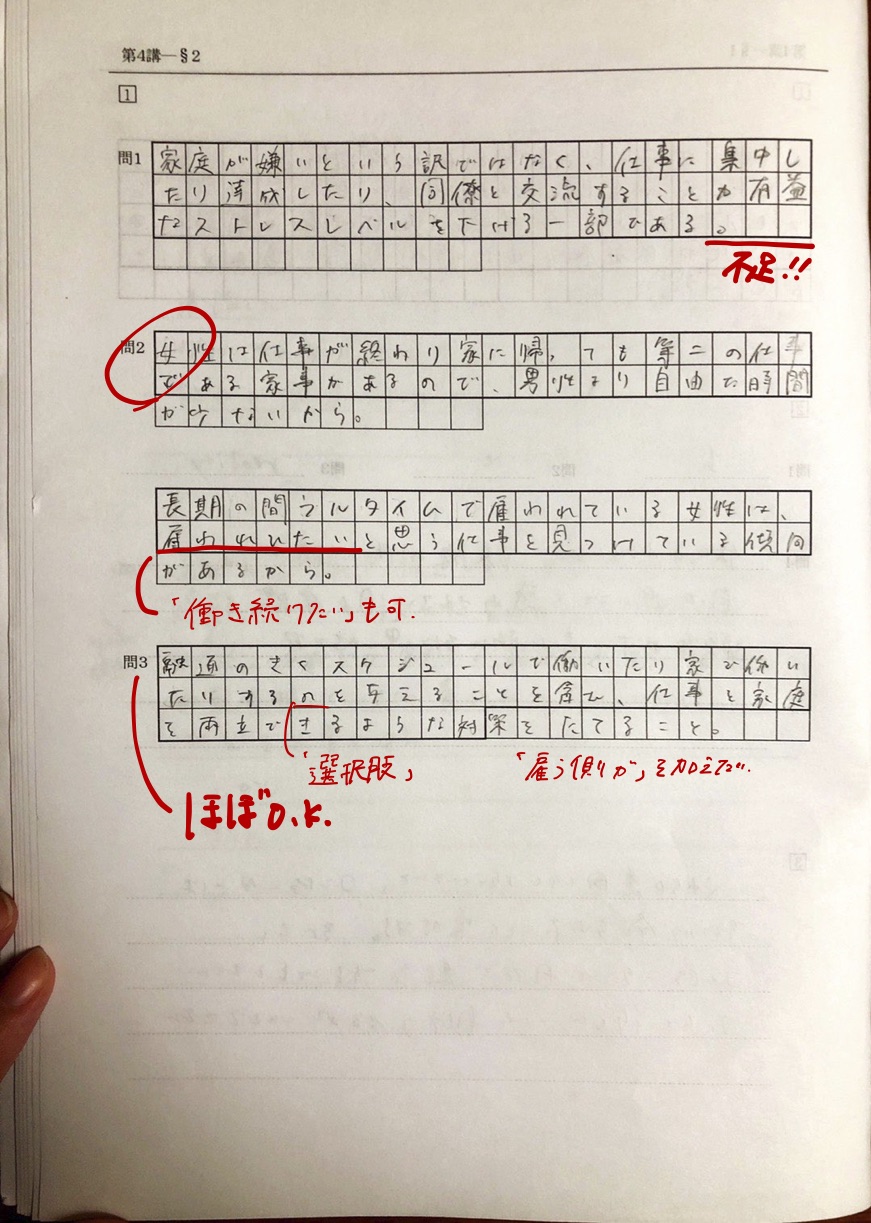 第4講―§2
1
問1
家庭が嫌いという訳ではなく、仕事に集中し
たり達成したり、同僚と交流することが有益
なストレスレベルを下げる一部である。
不足!!
問2
女性は仕事が終わり家に帰っても第二の仕事
である家事があるので、男性より自由な時間
が少ないから。
長期の間フルタイムで雇われている女性は、
雇われれたいと思う仕事を見つけている傾向
があるから。
「働き続けたい」も可.
問3
融通のきくスケジュールで働いたり家で働い
たりするのを与えることを含む、仕事と家庭
を両立できるような対策をたてること。
「選択肢」
「雇う側が」を加えたい.
ほぼO.K.